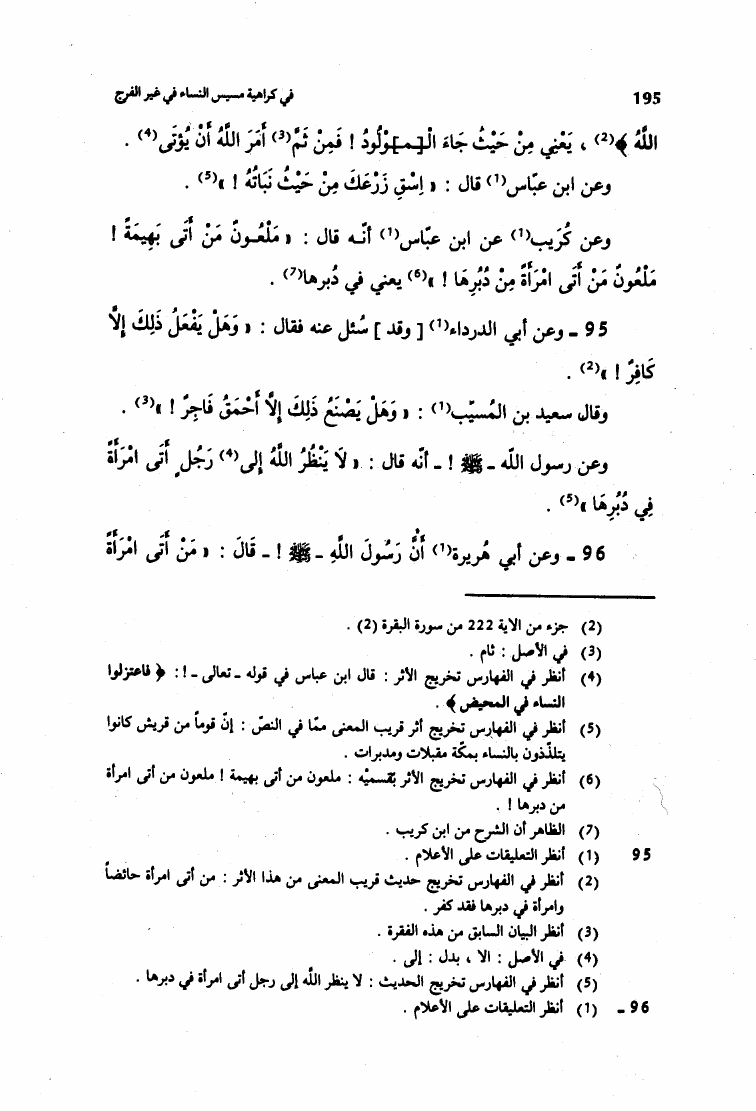 195 في كراهية مسيس النساء في غير الفرج
اللَّهُ ﴾(2) ، يَعْنِي مِنْ حَيْثُ جَاءَ الْـ[ـمـ]ـوْلُودُ ! فَمِنْ ثَمَّ(3) أَمَرَ اللَّهُ أَنْ يُؤْتَى(4) .
وعن ابن عبّاس(1) قال : « اِسْقِ زَرْعَكَ مِنْ حَيْثُ نَبَاتُهُ ! »(5) .
وعن كُرَيب(1) عن ابن عبّاس(1) أنّـه قال : « مَلْعُـونٌ مَنْ أَتَى بَهِيمَةً !
مَلْعُونٌ مَنْ أَتَى امْرَأَةً مِنْ دُبُرِهَا ! »(6) يعني في دُبرها(7) .
95 ـ وعن أبي الدرداء(1) [ وقد ] سُئل عنه فقال : « وَهَلْ يَفْعَلُ ذَلِكَ إِلاَّ
كَافِرٌ ! »(2) .
وقال سعيد بن المُسيّب(1) : « وَهَلْ يَصْنَعُ ذَلِكَ إِلاَّ أَحْمَقُ فَاجِرٌ ! »(3) .
وعن رسول اللّه ـ ﷺ ! ـ أنّه قال : « لاَ يَنْظُرُ اللَّهُ إِلى(4) رَجُلٍ أَتَى امْرَأَةً
فِي دُبُرِهَا »(5) .
96 ـ وعن أبي هُريرة(1) أَنَّ رَسُولَ اللَّهِ ـ ﷺ ! ـ قَالَ : « مَنْ أَتَى امْرَأَةً
(2) جزء من الآية 222 من سورة البقرة (2) .
(3) في الأصل : ثام .
(4) أنظر في الفهارس تخريج الأثر : قال ابن عباس في قوله ـ تعالى ـ ! : ﴿ فاعتزلوا
النساء في المحيض ﴾ .
(5) أنظر في الفهارس تخريج أثر قريب المعنى ممّا في النصّ : إنّ قوماً من قريش كانوا
يتلذّذون بالنساء بمكّة مقبلات ومدبرات .
(6) أنظر في الفهارس تخريج الأثر بقسميْه : ملعون من أتى بهيمة ! ملعون من أتى امرأة
من دبرها ! .
(7) الظاهر أن الشرح من ابن كريب .
95 (1) أنظر التعليقات على الأعلام .
(2) أنظر في الفهارس تخريج حديث قريب المعنى من هذا الأثر : من أتى امرأة حائضاً
وامرأة في دبرها فقد كفر .
(3) أنظر البيان السابق من هذه الفقرة .
(4) في الأصل : الا ، بدل : إلى .
(5) أنظر في الفهارس تخريج الحديث : لا ينظر اللّه إلى رجل أتى امرأة في دبرها .
96 ـ (1) أنظر التعليقات على الأعلام .